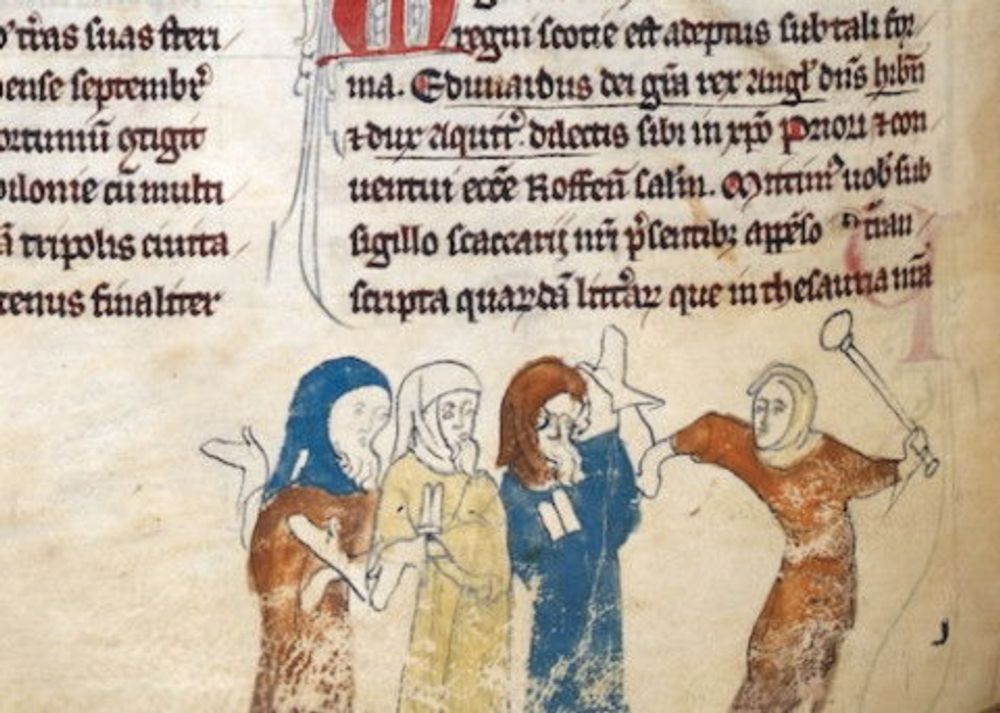 suas
septembr̄
ꝯtigit
cū multi
tripolis ciuita
tenus finaliter
regni scotie est adeptus sub tali for
ma. Edwardus dei grā rex Angl' dn̄s hibn̄
⁊ dux Aquit'. dilectis sibi in xp̄o Priori ⁊ con
uentui ecc̄e Roffen̄ salm̄. Mittim' uob' sub
sigillo scaccarij nr̄i p̄sentibꝫ app̄nso
scripta quarūdā litt'aꝝ que in thesauria nr̄a